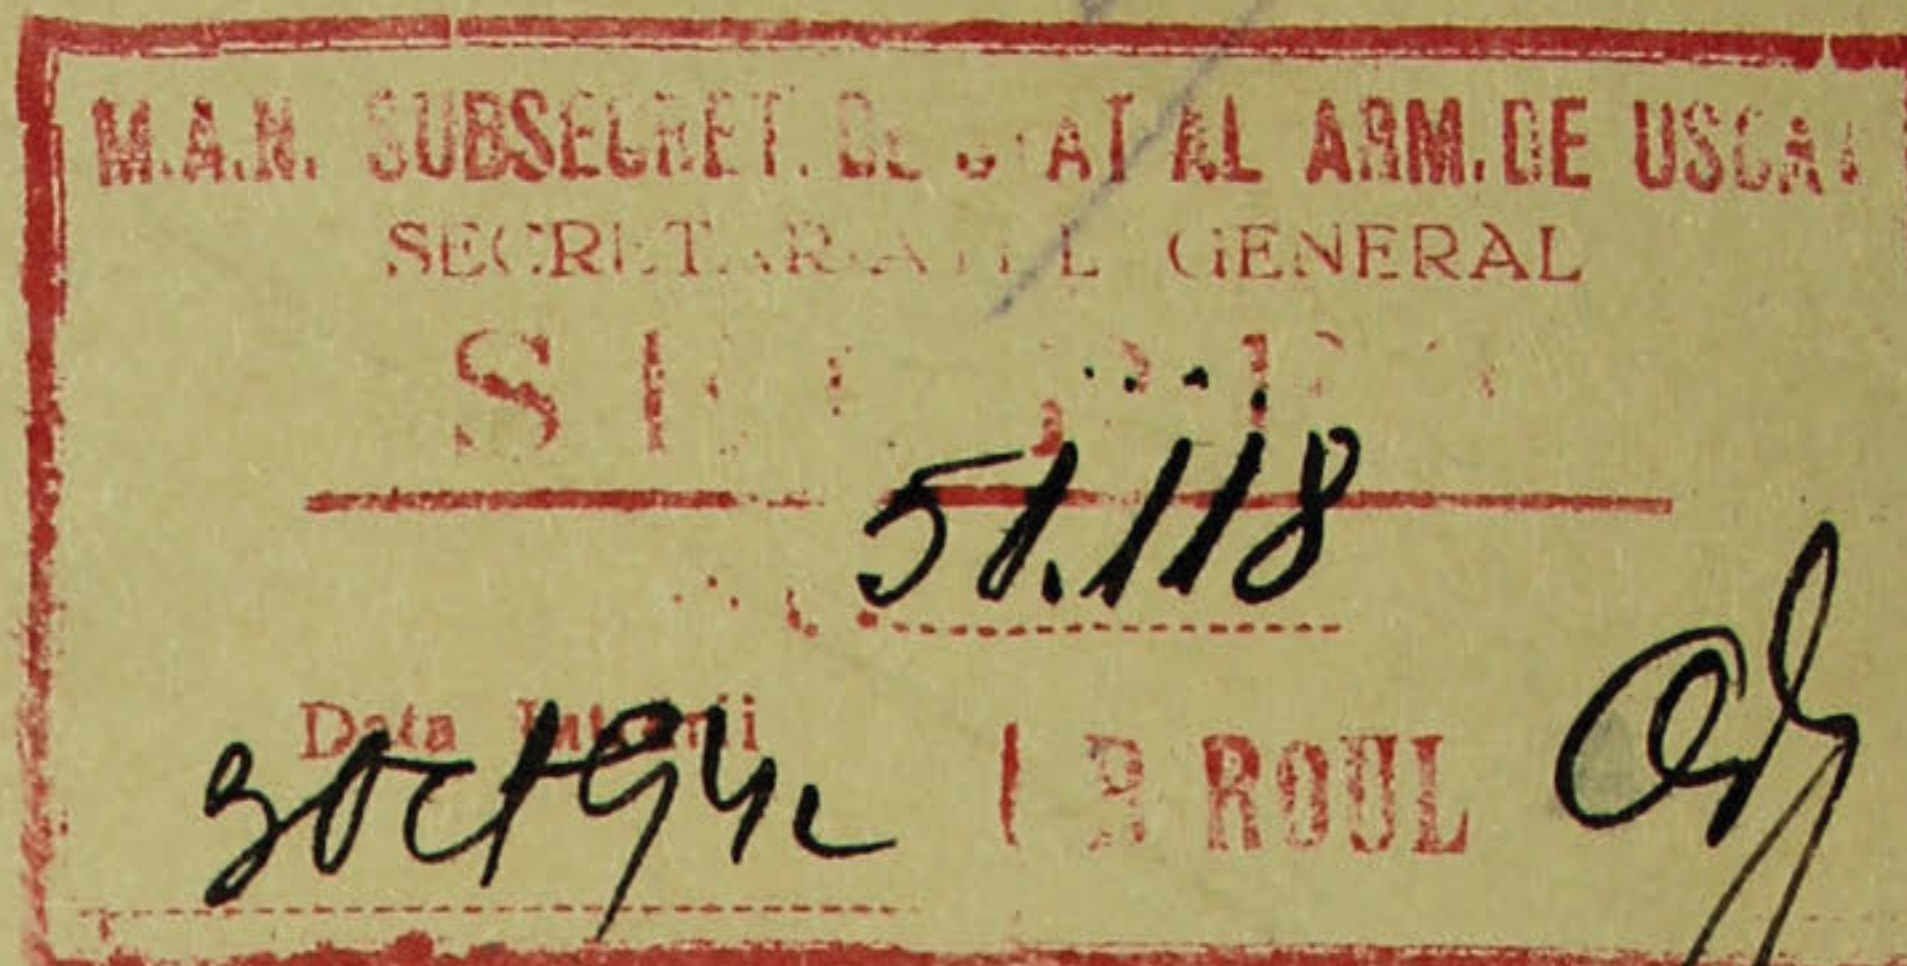 M.A.N. SUBSECRET. DE STAT AL ARM. DE USCAT
SECRETARIATUL GENERAL
51.118
Data
3 Oct 942
BIROUL